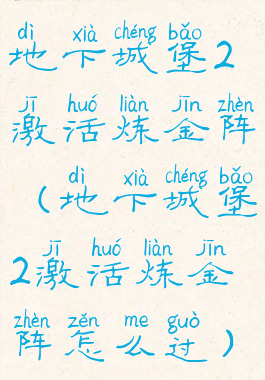 dì xià chéng bǎo
地下城堡2
jī huó liàn jīn zhèn
激活炼金阵
dì xià chéng bǎo
(地下城堡
jī huó liàn jīn
2激活炼金
zhèn zěn me guò
阵怎么过)